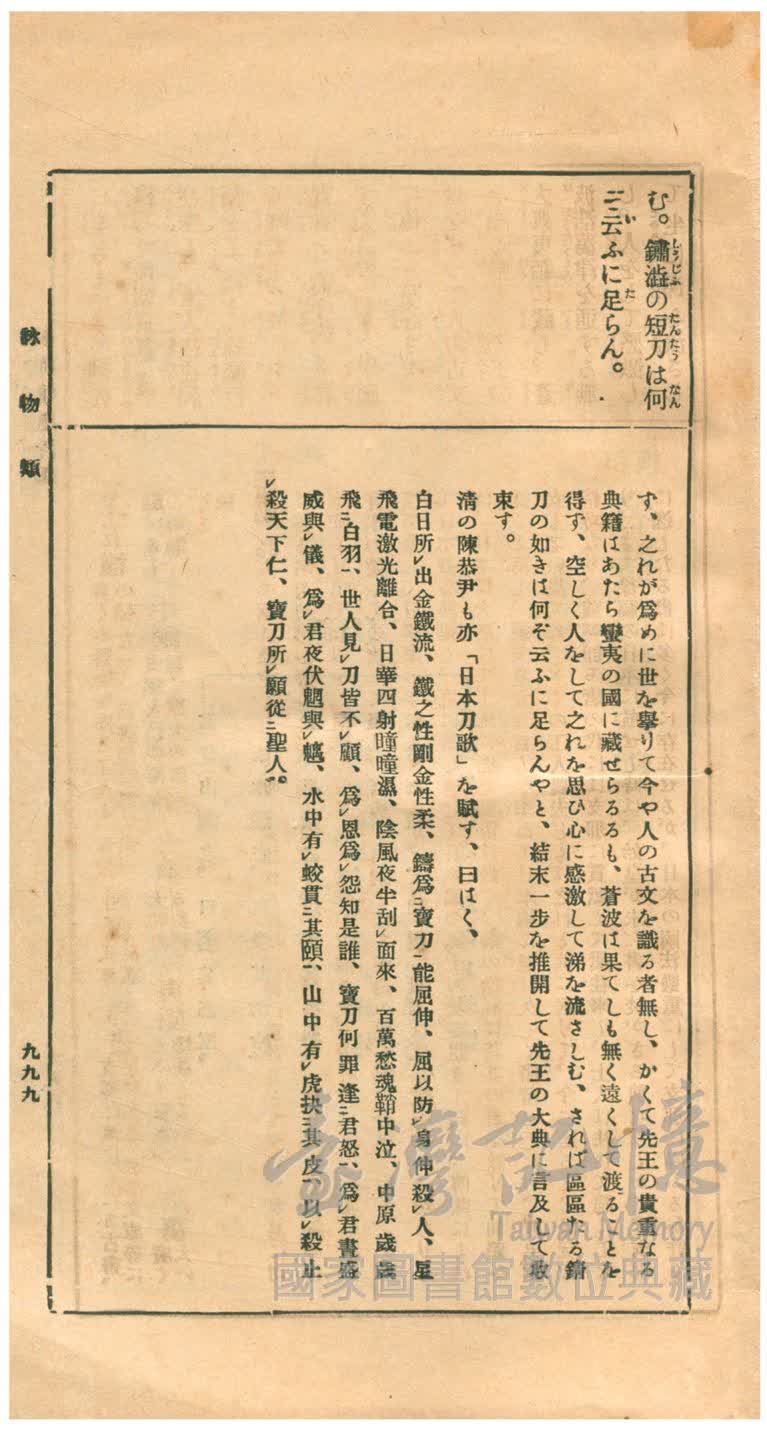 む。鏽澁の短刀は何
ぞ云ふに足らん。
す、之れが爲めに世を擧りて今や人の古文を識る者無し、かくて先王の貴重なる
典籍はあたら蠻夷の國に藏せらるるも、蒼波は果てしも無く遠くして渡ることを
得ず、空しく人をして之れを思ひ心に感激して涕を流さしむ、されば區區たる鏽
刀の如きは何ぞ云ふに足らんやと、結末一步を推開して先王の大典に言及して收
束す。
清の陳恭尹も亦「日本刀歌」を賦す、曰はく、
白日所㆑出金鐵流、鐵之性剛金性柔、鑄爲㆓寶刀㆒能屈伸、屈以防㆑身伸殺㆑人、星
飛電激光離合、日華四射瞳瞳濕、陰風夜半刮㆑面來、百萬愁魂鞘中泣、中原歲歲
飛㆓白羽㆒、世人見㆑刀皆不㆑顧、爲㆑恩爲㆑怨知是誰、寶刀何罪逢㆓君怒㆒、爲㆑君晝盛
威與㆑儀、爲㆑君夜伏魍與㆑魎、水中有㆑蛟貫㆓其頤㆒、山中有㆑虎抉㆓其皮㆒、以㆑殺止
㆑殺天下仁、寶刀所㆑願從㆓聖人㆒。
詠物類
九九九
臺灣記憶
Taiwan Memory
國家圖書館數位典藏